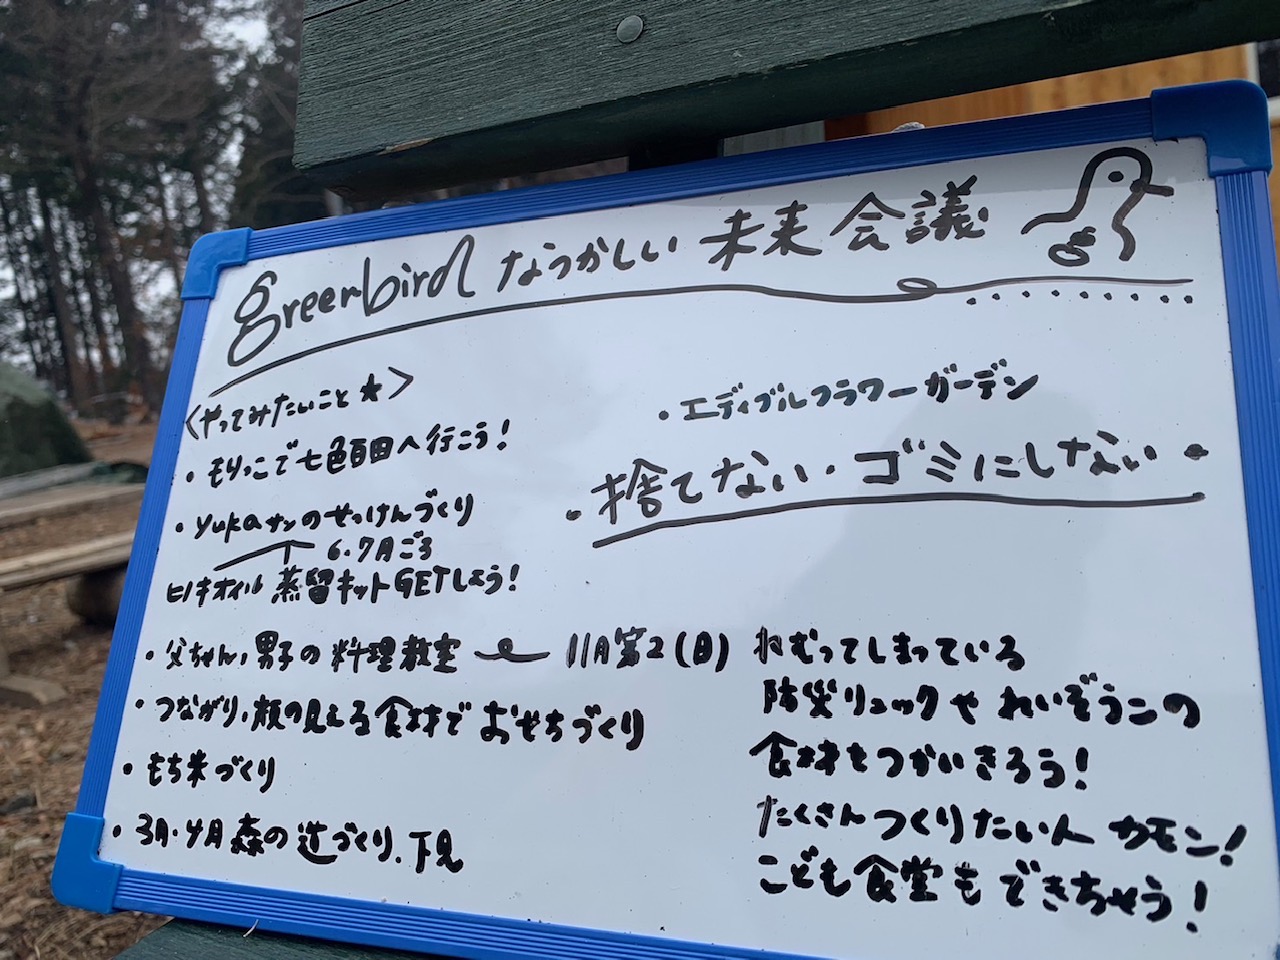 greenbird なうかしい 未来会議
<やってみたいこと★>
・もりっこで七色百田へ行こう!
・yukaサンのせっけんづくり
6・7月ごろ
ヒノキオイル 蒸留キットGETしよう!
・父ちゃん,男子の料理教室 11月第2(日)
・つながり,顔の見える食材でおせちづくり
・もち米づくり
・3月・4月森の道づくり.下見
・エディブルフラワーガーデン
・捨てない・ゴミにしない・
ねむってしまっている
防災リュックやれいぞうこの
食材をつかいきろう!
たくさんつくりたい人 カモン!
こども食堂もできちゃう!